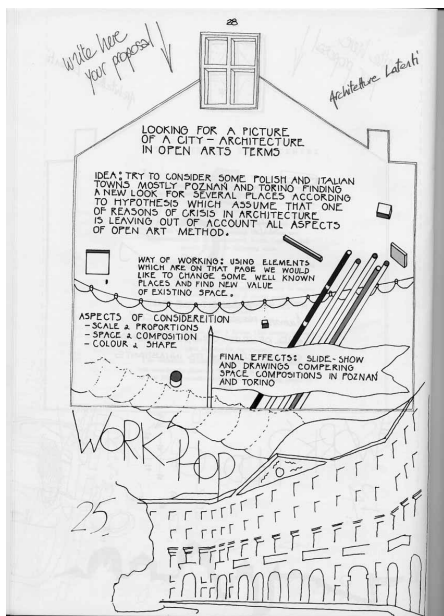 28
write here
your proposal
Architetture Latenti
LOOKING FOR A PICTURE
OF A CITY – ARCHITECTURE
IN OPEN ARTS TERMS
IDEA: TRY TO CONSIDER SOME POLISH AND ITALIAN
TOWNS MOSTLY POZNAŃ AND TORINO FINDING
A NEW LOOK FOR SEVERAL PLACES ACCORDING
TO HYPOTHESIS WHICH ASSUME THAT ONE
OF REASONS OF CRISIS IN ARCHITECTURE
IS LEAVING OUT OF ACCOUNT ALL ASPECTS
OF OPEN ART METHOD.
WAY OF WORKING: USING ELEMENTS
WHICH ARE ON THAT PAGE WE WOULD
LIKE TO CHANGE SOME WELL KNOWN
PLACES AND FIND NEW VALUE
OF EXISTING SPACE.
ASPECTS OF CONSIDEREITION
– SCALE & PROPORTIONS
– SPACE & COMPOSITION
– COLOUR & SHAPE
FINAL EFFECTS: SLIDE-SHOW
AND DRAWINGS COMPERING
SPACE COMPOSITIONS IN POZNAŃ
AND TORINO
WORKSHOP
25